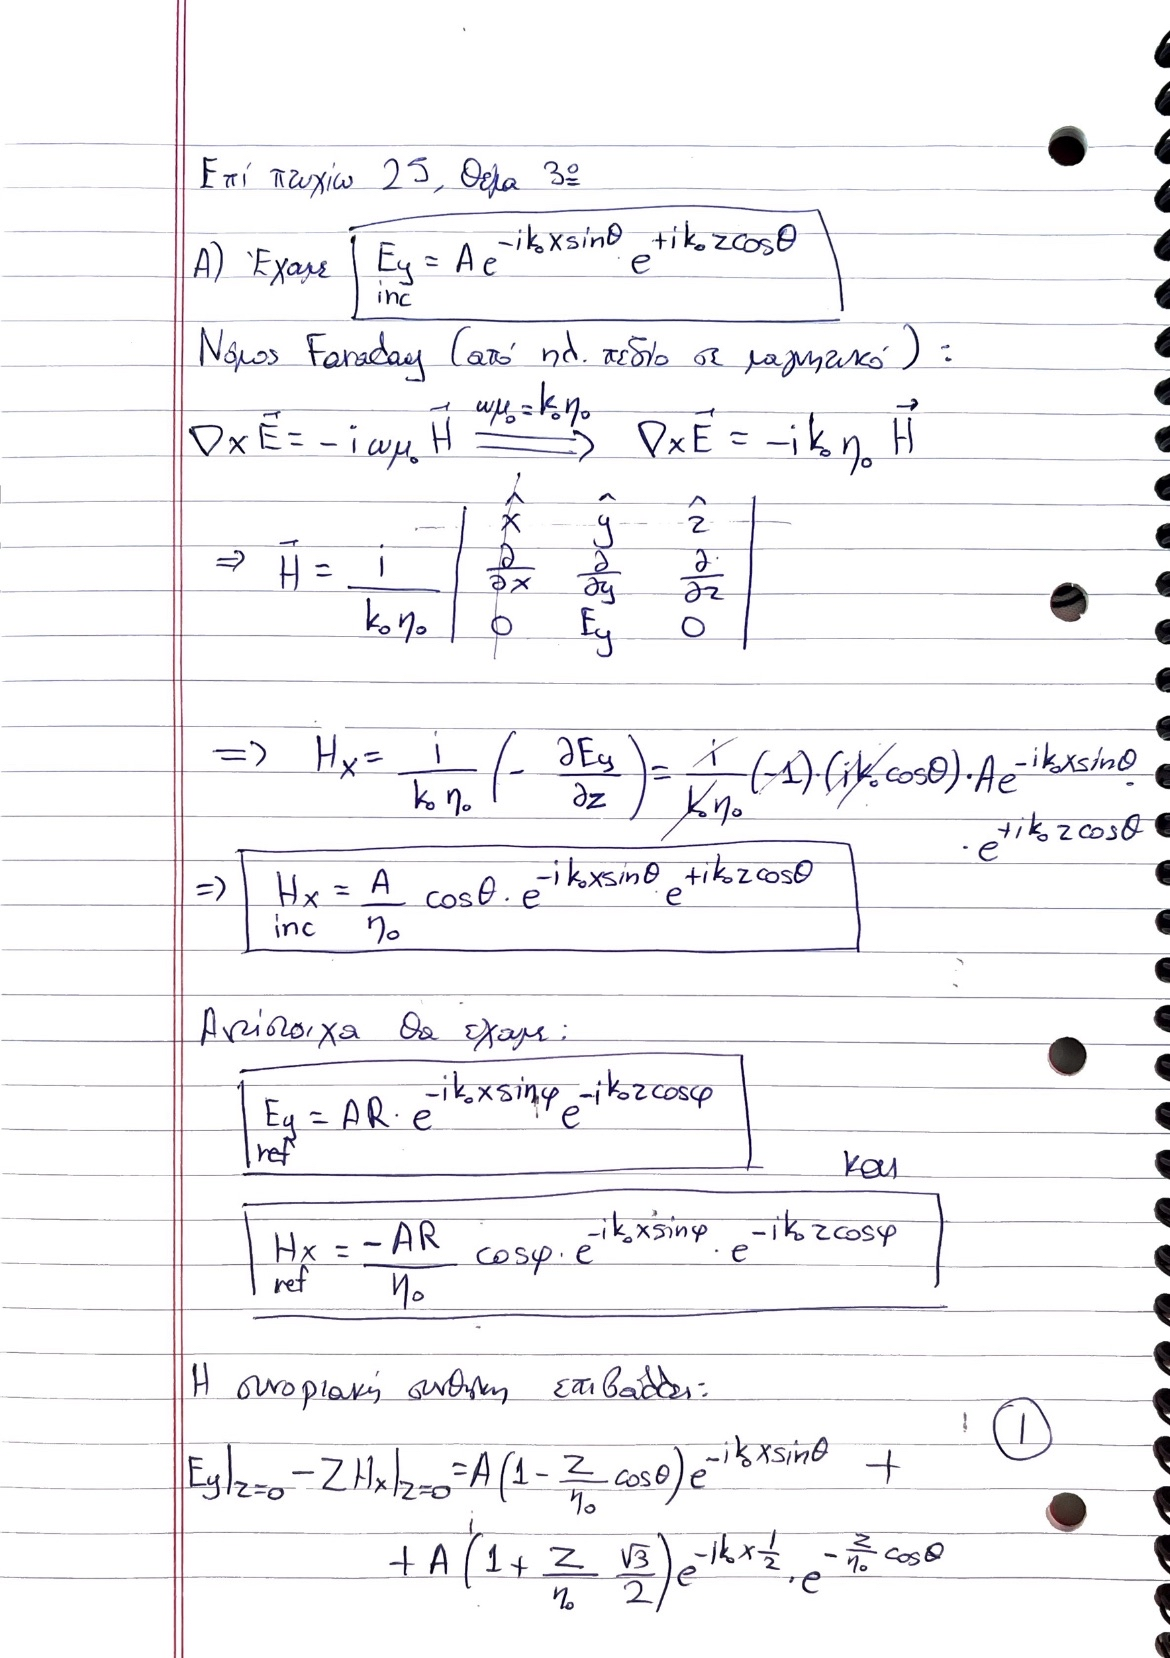 Επί πτυχίω 25, Θέμα 3º
A) Έχουμε E_y inc = A e^{-ik₀x sinθ} e^{+ik₀z cosθ}
Νόμος Faraday (από ηλ. πεδίο σε μαγνητικό) :
∇×E⃗ = -iωμ₀ H⃗ ⟹ (ωμ₀ = k₀η₀) ∇×E⃗ = -ik₀η₀ H⃗
⇒ H⃗ = i/(k₀η₀) | x̂ ŷ ẑ
∂/∂x ∂/∂y ∂/∂z
0 E_y 0 |
⇒ H_x = i/(k₀η₀) (- ∂E_y/∂z) = i/(k₀η₀) (-1)·(ik₀cosθ)·A e^{-ik₀x sinθ} ·
· e^{+ik₀z cosθ}
⇒ H_x inc = A/η₀ cosθ · e^{-ik₀x sinθ} e^{+ik₀z cosθ}
Αντίστοιχα θα έχουμε:
E_y ref = AR · e^{-ik₀x sinφ} e^{-ik₀z cosφ}
και
H_x ref = -AR/η₀ cosφ · e^{-ik₀x sinφ} · e^{-ik₀z cosφ}
Η συνοριακή συνθήκη επιβάλλει:
①
E_y|_{z=0} - Z H_x|_{z=0} = A(1 - Z/η₀ cosθ) e^{-ik₀x sinθ} +
+ A(1 + Z/η₀ √3/2) e^{-ik₀x 1/2} · e^{-Z/η₀ cosθ}